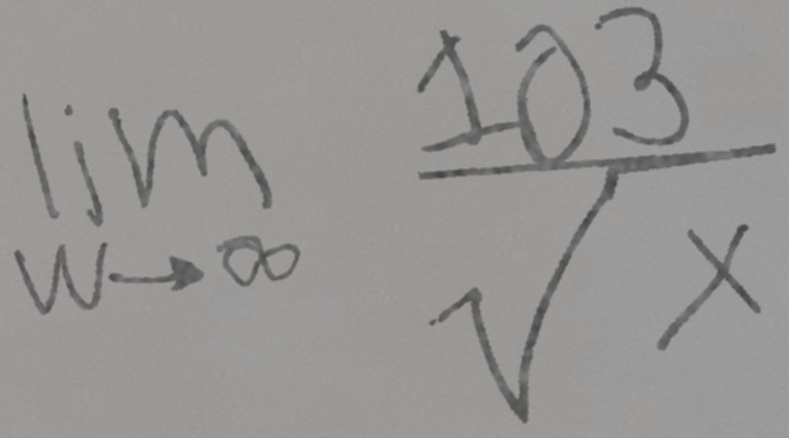 \lim_{w \to \infty} \frac{103}{\sqrt{x}}